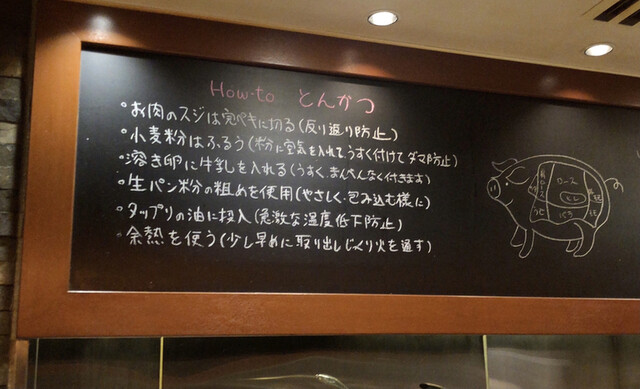 How-to とんかつ
・お肉のスジは完ペキに切る(反り返り防止)
・小麦粉はふるう(粉に空気を入れて、うすく付けて ダマ防止)
・溶き卵に牛乳を入れる(うすく、まんべんなく付きます)
・生パン粉の粗めを使用(やさしく、包み込む様に)
・タップリの油に投入(急激な温度低下防止)
・余熱を使う(少し早めに取り出しじっくり火を通す)
ロース
ヒレ
バラ